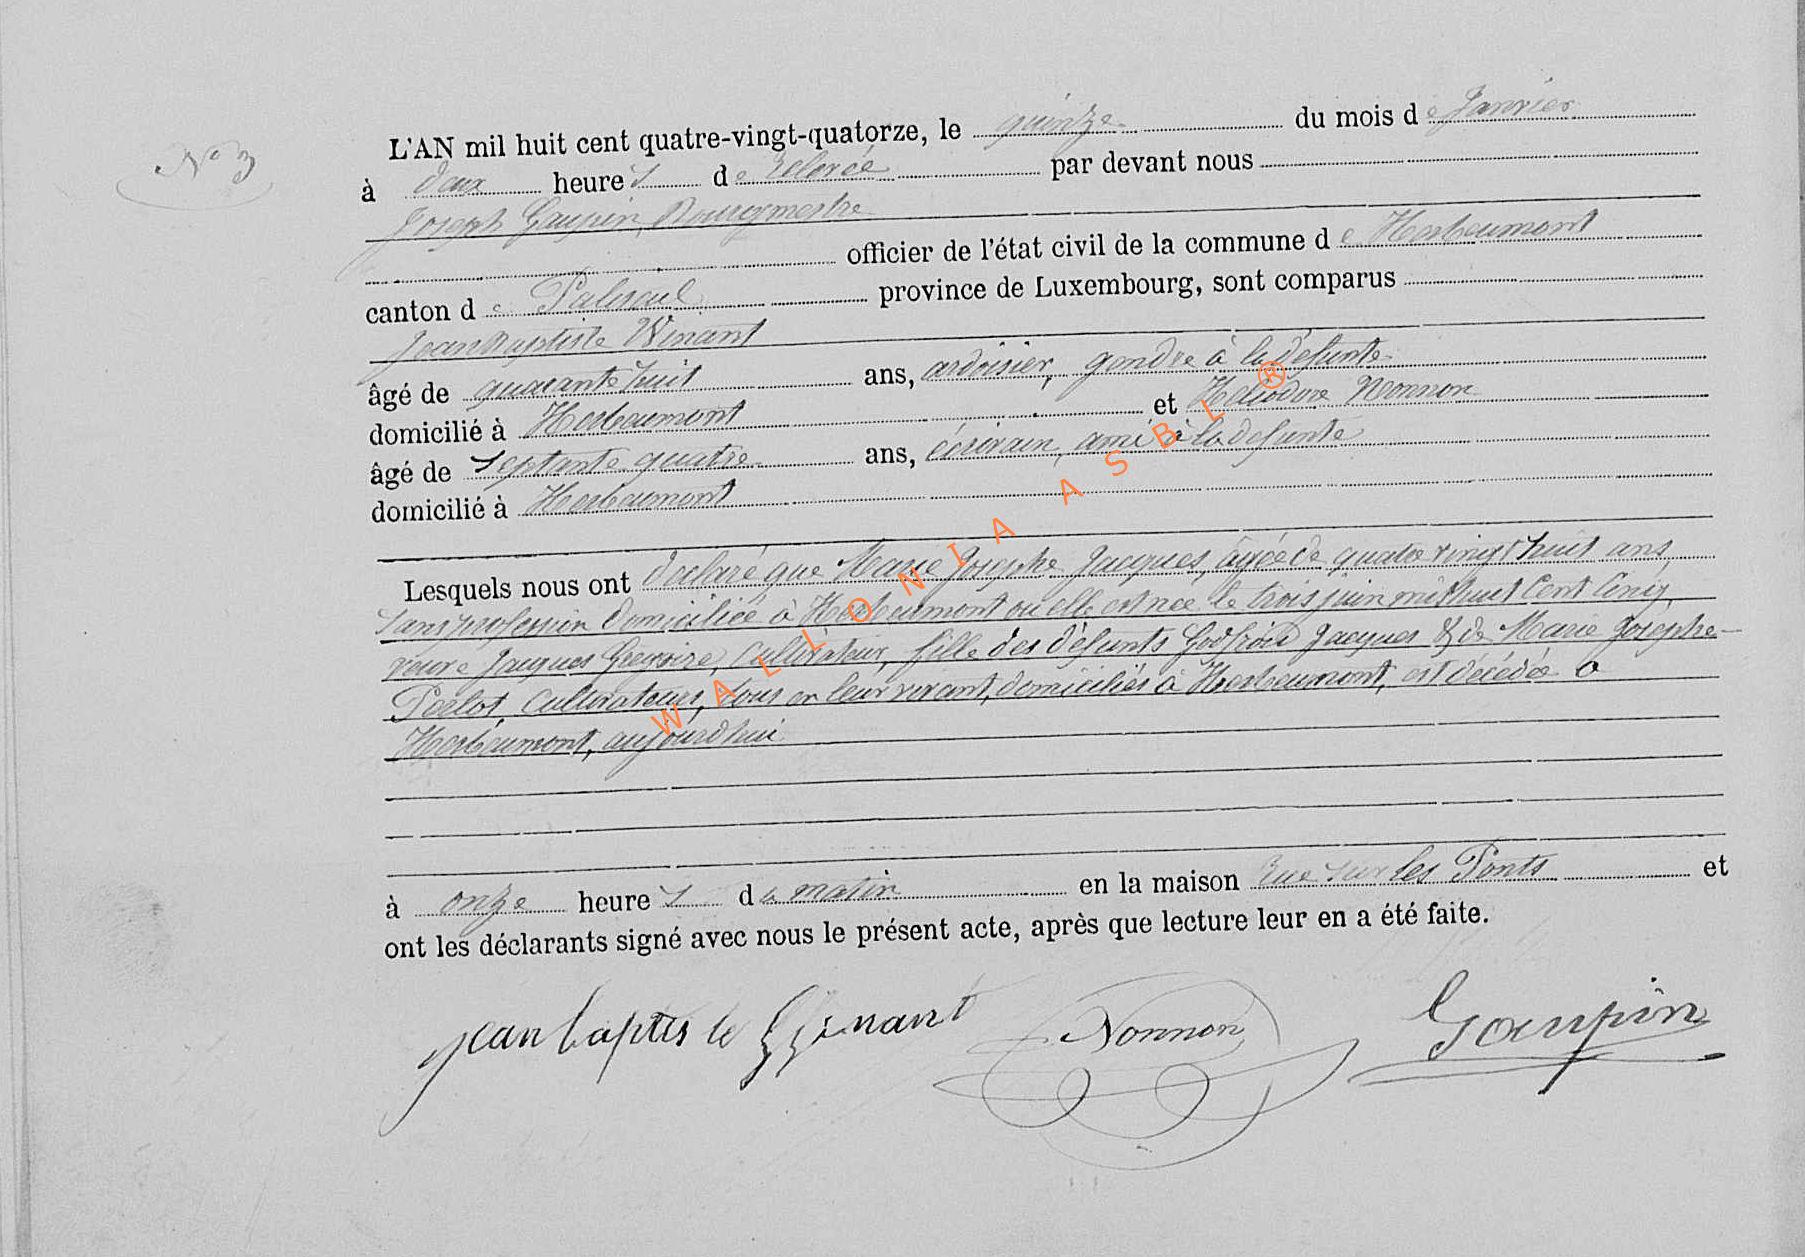 N° 3
L'AN mil huit cent quatre-vingt-quatorze, le quinze du mois de Janvier
à deux heures de relevée par devant nous
Joseph Gaupin, Bourgmestre
officier de l'état civil de la commune de Herbeumont
canton de Paliseul province de Luxembourg, sont comparus
Jean Baptiste Winant
âgé de quarante huit ans, ardoisier, gendre à la défunte
domicilié à Herbeumont et Héliodore Nonnon
âgé de septante quatre ans, écrivain, ami à la défunte
domicilié à Herbeumont
Lesquels nous ont déclaré que Marie Josephe Jacques, âgée de quatre vingt huit ans,
sans profession domiciliée à Herbeumont où elle est née le trois juin mil huit cent cinq,
veuve Jacques Grégoire, cultivateur, fille des défunts Godfroid Jacques & de Marie Josephe
Perlot, cultivateurs, tous en leur vivant, domiciliés à Herbeumont, est décédée à
Herbeumont, aujourd'hui
à onze heures du matin en la maison rue sur les Ponts et
ont les déclarants signé avec nous le présent acte, après que lecture leur en a été faite.
jean baptiste Winant Nonnon Gaupin
WALLONIA ASBL ®